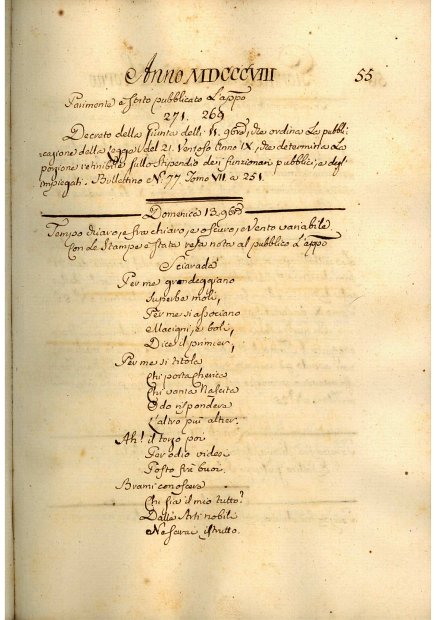 Anno MDCCCVIII 55
Parimente è stato pubblicato l'appo
271. 269
Decreto della Giunta delli 11. 9bre, che ordina la pubbli-
cazione della Legge del 21. Ventoso Anno IX, che determina la
porzione retinibile sullo Stipendio dei funzionari pubblici, e degl'
impiegati. Bullettino N.º 77. Tomo VII a 251.
Domenica 13. 9bre
Tempo chiaro, e fra chiaro, e oscuro, e Vento variabile
Con le Stampe è stata resa nota al pubblico l'appo
Sciarada
Per me grandeggiano
Superbe moli,
Per me si associano
Macigni, e
Dice il primier,
Per me si titola
Chi porta
Chi vanta Nascita
Odo rispondere
L'altro più altier.
Ah! il terzo poi
Per odio videsi
Posto fra buoi.
Brami conoscere
Chi sia il mio tutto?
Dalle Arti nobili
Ne sarai istrutto.